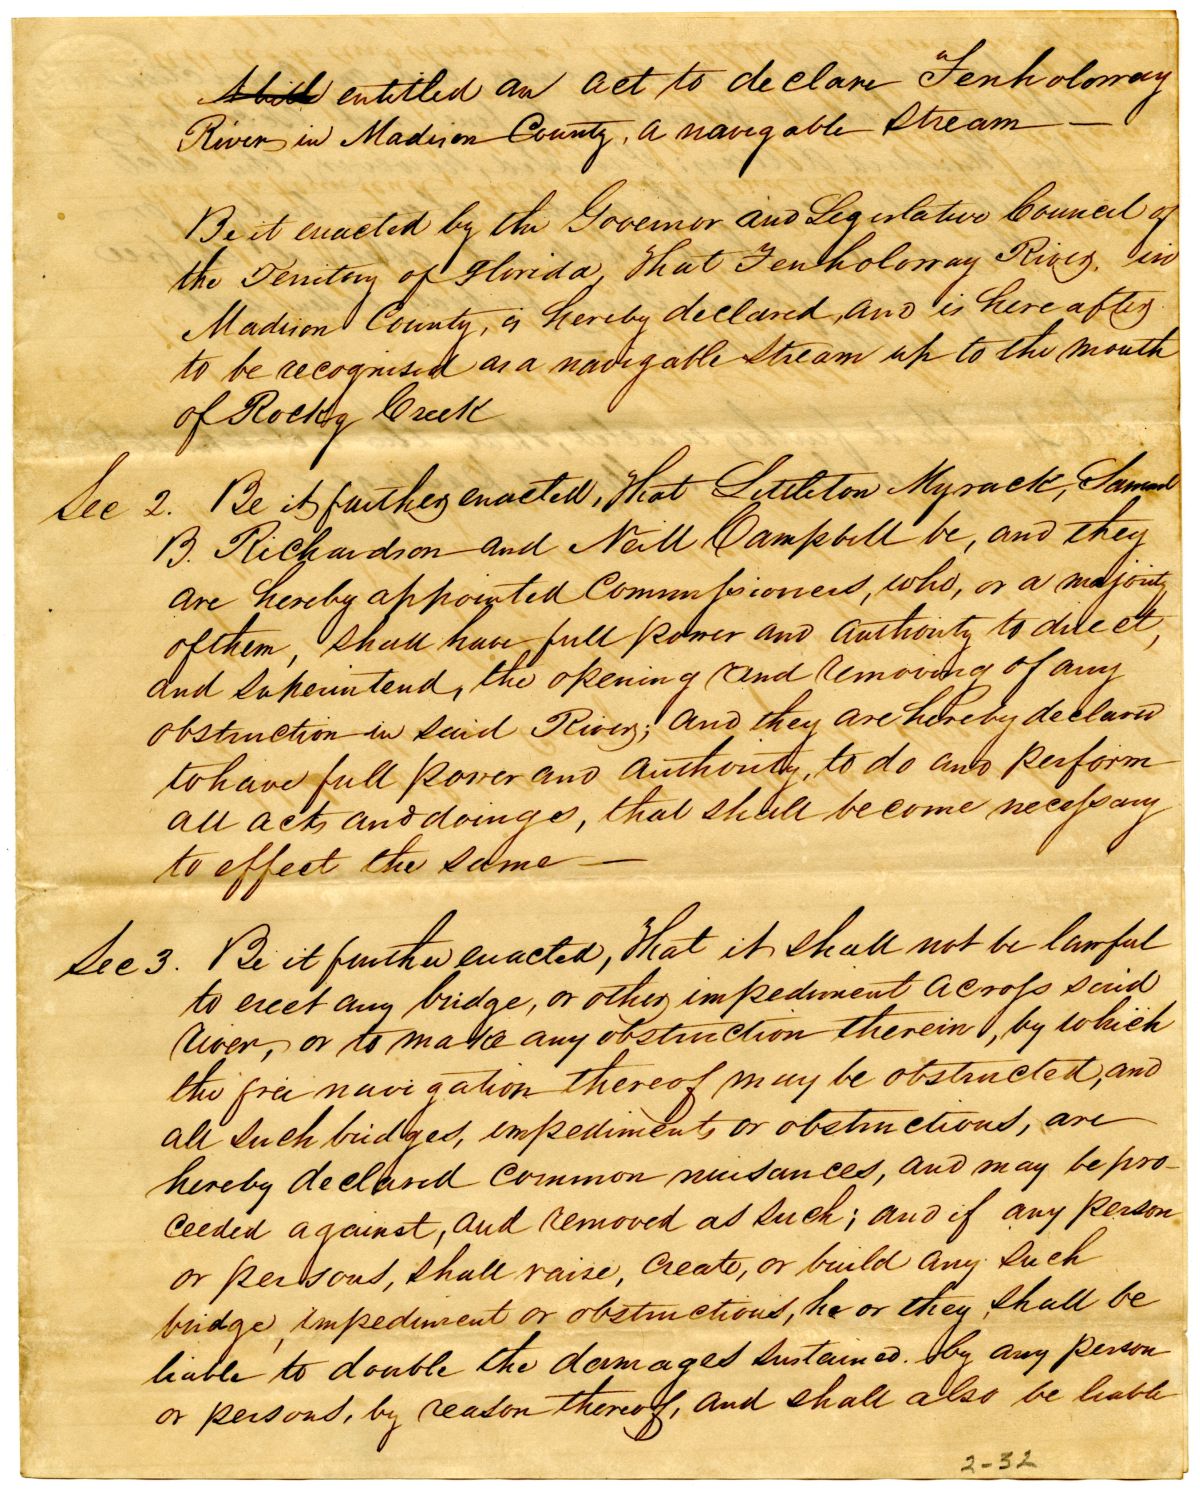 A bill entitled an act to declare Fenholoway
River in Madison County, a navigable Stream —
Be it enacted by the Governor and Legislative Council of
the Territory of Florida, That Fenholoway River, in
Madison County, is hereby declared, and is hereafter
to be recognised as a navigable Stream up to the mouth
of Rocky Creek
Sec 2. Be it further enacted, That Littleton Myrack, Samuel
B. Richardson and Neill Campbell be, and they
are hereby appointed Commissioners, who, or a majority
of them, shall have full power and authority to direct,
and superintend, the opening and removing of any
obstruction in said River; and they are hereby declared
to have full power and authority, to do and perform
all acts and doings, that shall become necessary
to effect the same —
Sec 3. Be it further enacted, That it shall not be lawful
to erect any bridge, or other impediment across said
River, or to make any obstruction therein, by which
the free navigation thereof may be obstructed, and
all such bridges, impediments or obstructions, are
hereby declared common nuisances, and may be pro-
ceeded against, and removed as such; and if any person
or persons, shall raise, create, or build any such
bridge, impediment or obstructions, he or they, shall be
liable to double the damages sustained by any person
or persons, by reason thereof, and shall also be liable
2-32